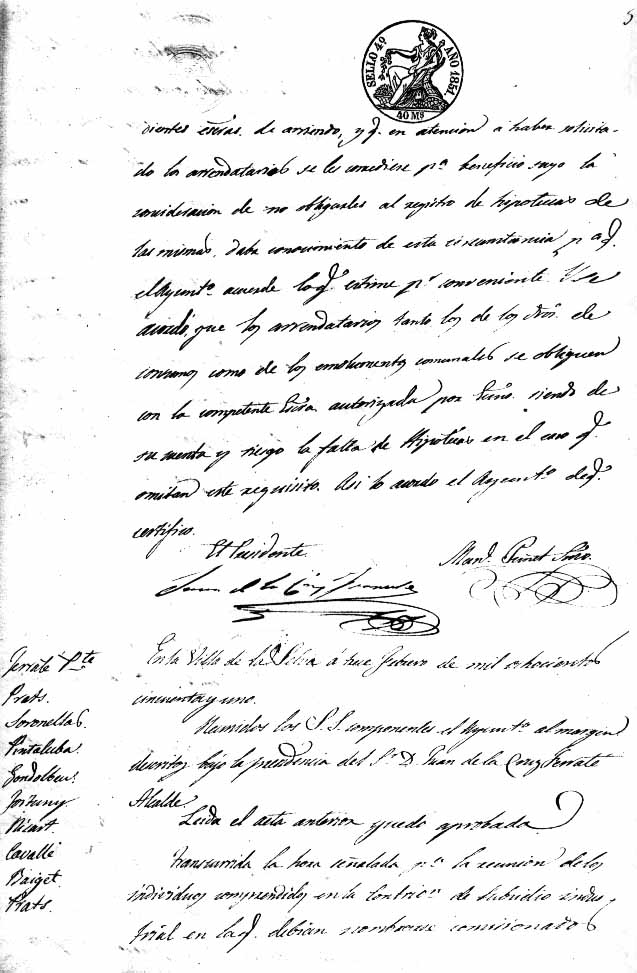 5
SELLO 4º AÑO 1851.
40 Ms
dientes escras. de arriendo, y q. en atencion á haber solicita-
do los arrendatarios se les concediese pa. beneficio suyo la
consideracion de no obligarles al registro de hipotecas de
las mismas, daba conocimiento de esta circunstancia p. a q.
el Ayuntº. acuerde lo q. estime pr. conveniente. Y se
acordó, que los arrendatarios tanto los de los dros. de
consumos como de los emolumentos comunales se obliguen
con la competente Escra. autorizada por Escno. siendo de
su cuenta y riesgo la falta de Hipotecas en el caso q.
omitan este requisito. Asi lo acordó el Ayuntº. de q.
certifico.
El Presidente
Juan de la Cruz Ferrate
Manl. Peñat Srio.
Ferrate Pte
Prats.
Soronellas.
Pintaluba.
Gondolbeu.
Fortuny
Nicart.
Cavallé
Baiget.
Prats.
En la Villa de la Selva á trece Febrero de mil ochocientos
cincuenta y uno.
Reunidos los S.S. componentes el Ayuntº. al margen
descritos bajo la presidencia del Sr. D. Juan de la Cruz Ferrate
Alcalde.
Leida el acta anterior quedó aprobada
Transcurrida la hora señalada pa. la reunion de los
individuos comprendidos en la Contricn. de subsidio indus
trial en la q. debian nombrarse comisionados